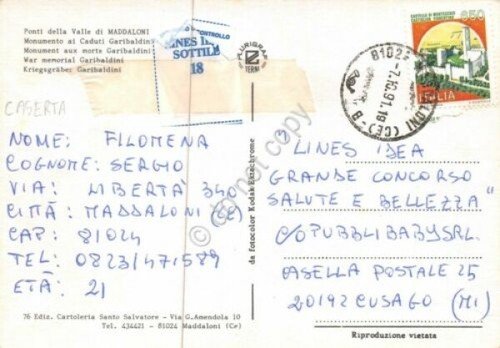 Ponti della Valle di MADDALONI
Monumento ai Caduti Garibaldini
Monument aux morts Garibaldini
War memorial Garibaldini
Kriegsgräber Garibaldini
CONTROLLO
LINES I
SOTTILE
18
PLURIGRAF
TERNI
CASERTA
NOME: FILOMENA
COGNOME: SERGIO
VIA: LIBERTA' 340
CITTÀ: MADDALONI (CE)
CAP: 81024
TEL: 0823/471589
ETÀ: 21
76 Ediz. Cartoleria Santo Salvatore - Via G. Amendola 10
Tel. 434421 - 81024 Maddaloni (Ce)
da fotocolor Kodak Ektachrome
650
ITALIA
8102
7.10.91.19
LONI (CE) - B
"LINES IDEA
GRANDE CONCORSO
SALUTE E BELLEZZA"
C/O PUBBLIBABY SRL.
CASELLA POSTALE 25
20192 CUSAGO (MI)
Riproduzione vietata